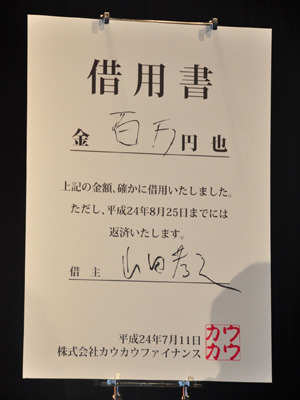 借用書
金 百万 円也
上記の金額、確かに借用いたしました。
ただし、平成24年8月25日までには
返済いたします。
借主 山田孝之
平成24年7月11日
株式会社カウカウファイナンス
カウ
カウ